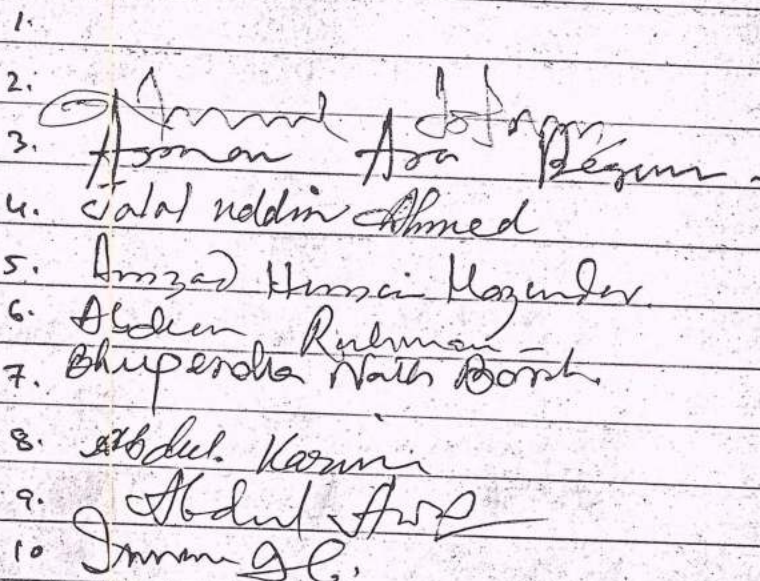 1.
2.
3. Asman Ara Begum
4. Jalal uddin Ahmed
5. Amzad Hussain Mazumdar.
6. Abdur Rahman
7. Bhupendra Nath Borah
8. Abdul Karim
9. Abdul
10